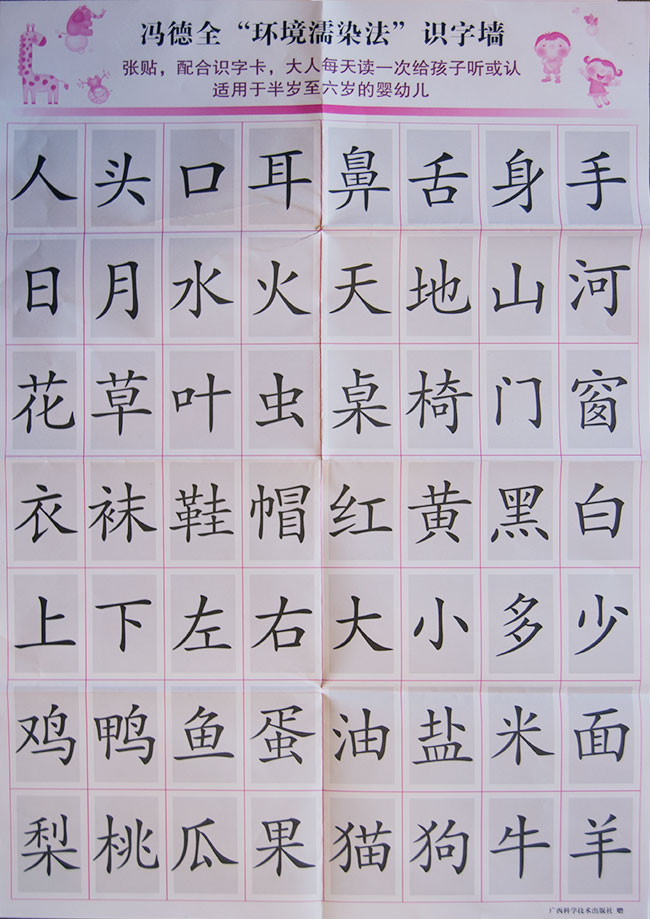 冯德全“环境濡染法”识字墙
张贴，配合识字卡，大人每天读一次给孩子听或认
适用于半岁至六岁的婴幼儿
人 头 口 耳 鼻 舌 身 手
日 月 水 火 天 地 山 河
花 草 叶 虫 桌 椅 门 窗
衣 袜 鞋 帽 红 黄 黑 白
上 下 左 右 大 小 多 少
鸡 鸭 鱼 蛋 油 盐 米 面
梨 桃 瓜 果 猫 狗 牛 羊
广西科学技术出版社 赠